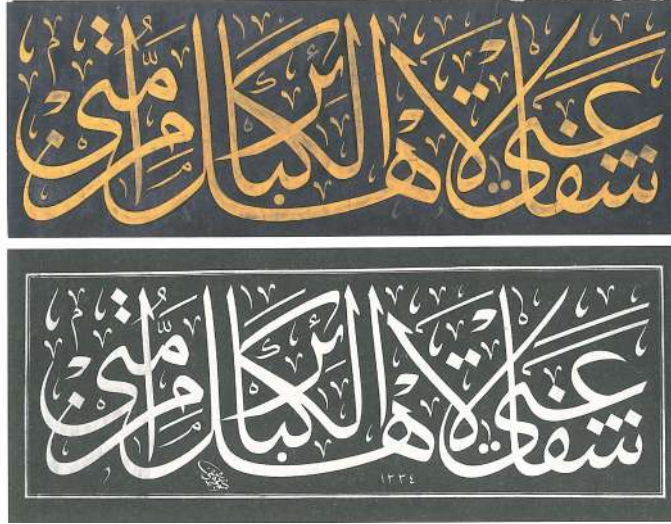 شفاعتي لأهل الكبائر من أمتي
شفاعتي لأهل الكبائر من أمتي
١٣٣٤